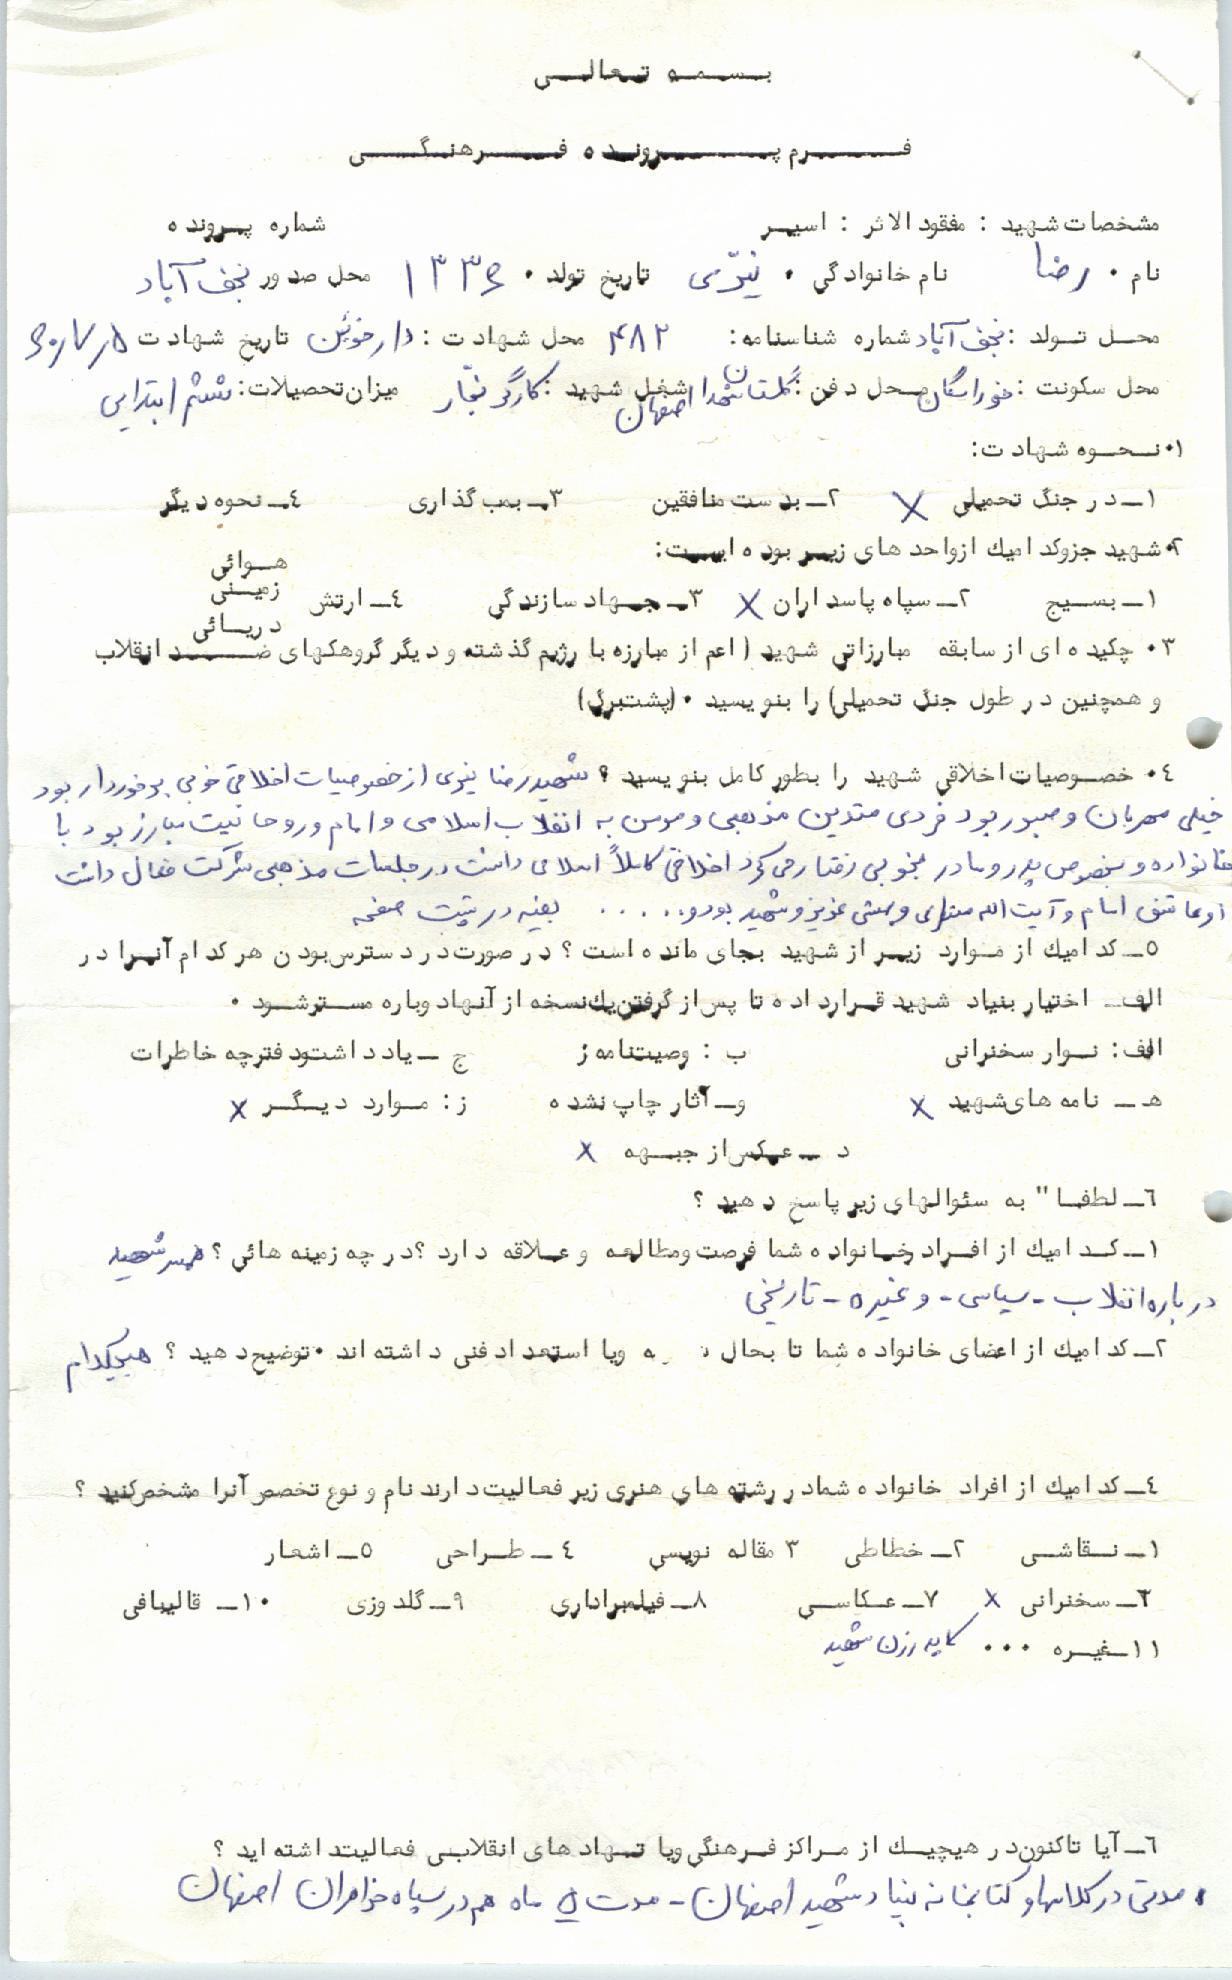 بسمه تعالی
فرم پرونده فرهنگی
مشخصات شهید : مفقود الاثر : اسیر شماره پرونده
نام ۰ رضا نام خانوادگی ۰ نیّری تاریخ تولد ۰ ۱۳۳۶ محل صدور نجف آباد
محل تولد : نجف آباد شماره شناسنامه: ۴۸۲ محل شهادت : دارخوئین تاریخ شهادت ۶۰/۷/۵
محل سکونت : خوراسگان محل دفن : گلستان شهدا اصفهان شغل شهید : کارگر نجّار میزان تحصیلات: ششم ابتدایی
۱۰ نحوه شهادت:
۱ـ در جنگ تحمیلی X ۲ـ بدست منافقین ۳ـ بمب گذاری ۴ـ نحوه دیگر
۲۰ شهید جزو کدامیك از واحدهای زیر بوده است:
۱ـ بسیج ۲ـ سپاه پاسداران X ۳ـ جهاد سازندگی ۴ـ ارتش هوائی زمینی دریائی
۳۰ چکیده ای از سابقه مبارزاتی شهید (اعم از مبارزه با رژیم گذشته و دیگر گروهکهای ضد انقلاب
و همچنین در طول جنگ تحمیلی) را بنویسید ۰ (پشت برگ)
۴۰ خصوصیات اخلاقی شهید را بطور کامل بنویسید ؟ شهید رضا نیری از خصوصیات اخلاقی خوبی برخوردار بود
خیلی مهربان و صبور بود فردی متدین مذهبی و مومن به انقلاب اسلامی و امام و روحانیت مبارز بود با
خانواده و بخصوص پدر و مادر بخوبی رفتار می کرد اخلاقی کاملاً اسلامی داشت در جلسات مذهبی شرکت فعال داشت
او عاشق امام و آیت الله منتظری و بهشتی عزیز و شهید بود و..... بقیه در پشت صفحه
۵ـ کدامیك از موارد زیر از شهید بجای مانده است ؟ در صورت در دسترس بودن هر کدام آنرا در
الف ـ اختیار بنیاد شهید قرار داده تا پس از گرفتن یك نسخه از آنها دوباره مسترشود ۰
الف: نوار سخنرانی ب : وصیتنامه ز ج ـ یادداشت و دفترچه خاطرات
هـ ـ نامه های شهید X و ـ آثار چاپ نشده ز: موارد دیگر X
د ـ عکس از جبهه X
۶ـ لطفا" به سئوالهای زیر پاسخ دهید ؟
۱ـ کدامیك از افراد خانواده شما فرصت و مطالعه و علاقه دارد ؟ در چه زمینه هائی ؟ همسر شهید
درباره انقلاب - سیاسی - و غیره - تاریخی
۲ـ کدامیك از اعضای خانواده شما تا بحال ه و یا استعداد فنی داشته اند ۰ توضیح دهید ؟ هیچکدام
۴ـ کدامیك از افراد خانواده شما در رشته های هنری زیر فعالیت دارند نام و نوع تخصص آنرا مشخص کنید ؟
۱ـ نقاشی ۲ـ خطاطی ۳ مقاله نویسی ۴ـ طراحی ۵ـ اشعار
۲ـ سخنرانی X ۷ـ عکاسی ۸ـ فیلمبراداری ۹ـ گلدوزی ۱۰ـ قالیبافی
۱۱ـ غیره ... زن شهید
۶ـ آیا تاکنون در هیچیك از مراکز فرهنگی و یا نهادهای انقلابی فعالیت داشته اید ؟
مدتی در کلاسها و کتابخانه بنیاد شهید اصفهان - مدت ۵ ماه هم در سپاه خواهران اصفهان